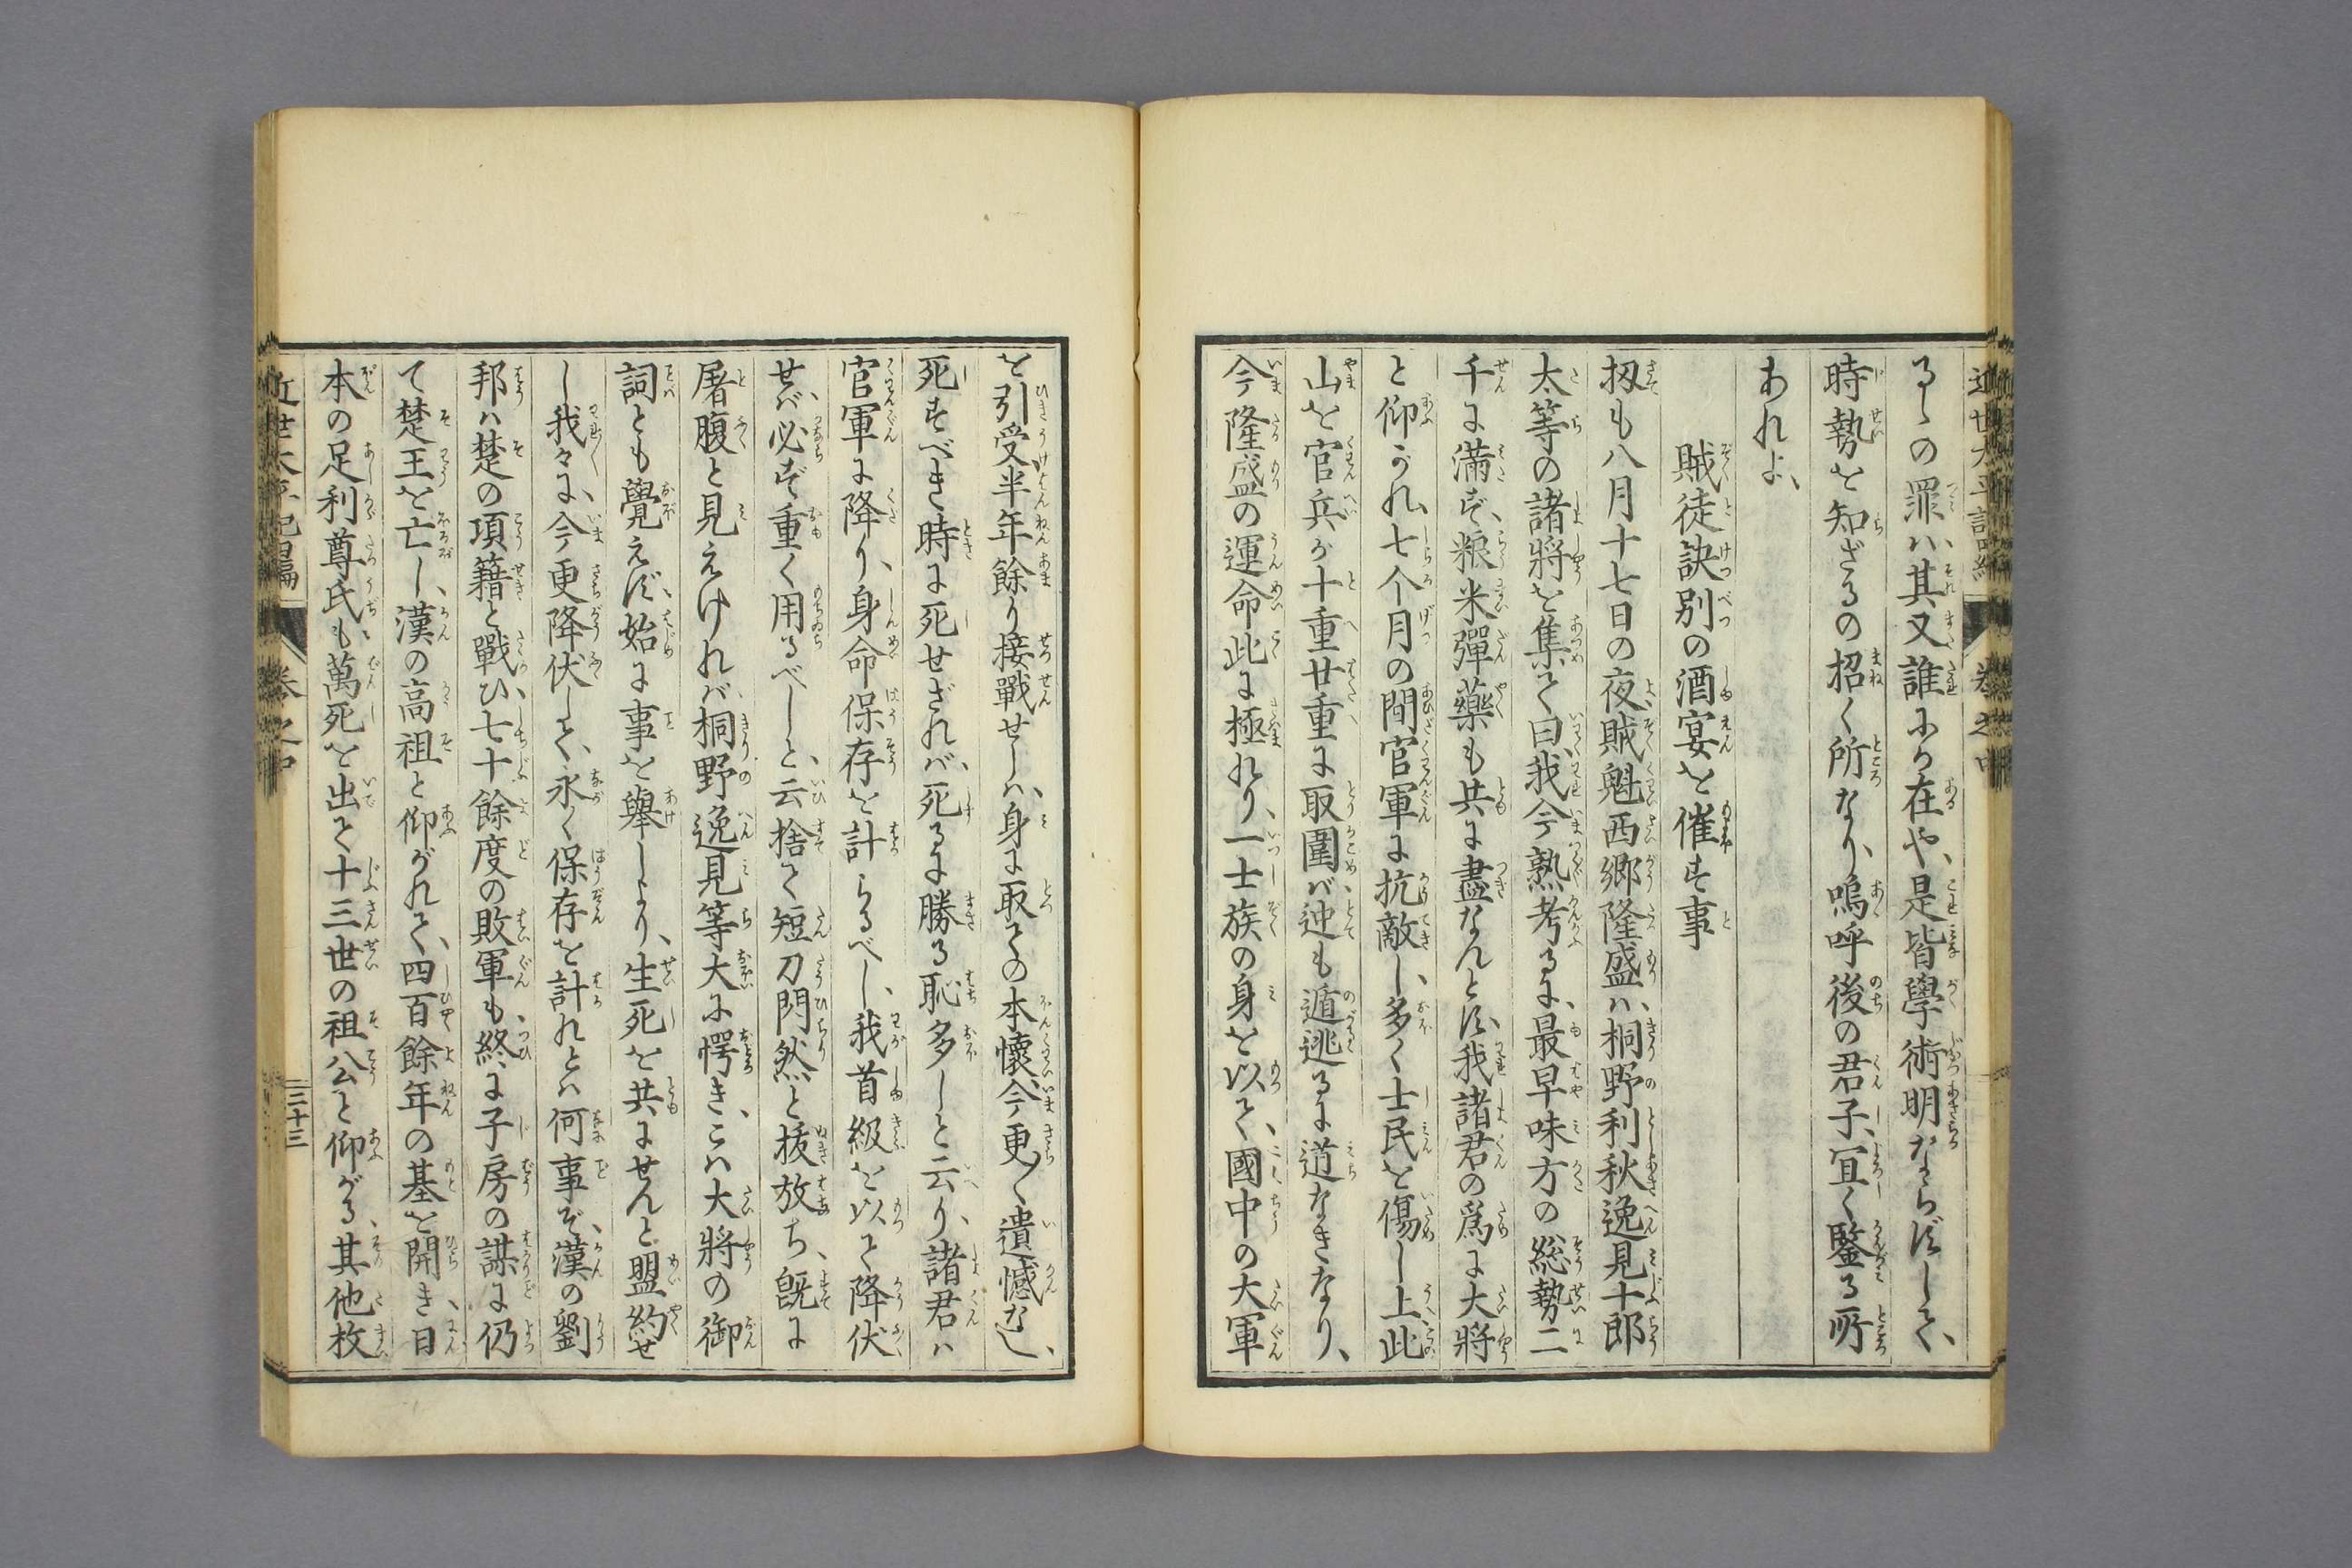 るゝの罪ハ、其又誰にか在や、是皆學術明ならずして、
時勢を知ざるの招く所なり、嗚呼後の君子、宜く鑒る所
あれよ、
賊徒訣別の酒宴を催す事
扨も八月十七日の夜、賊魁西郷隆盛ハ、桐野利秋逸見十郎
太等の諸將を集て曰、我今熟考るに、最早味方の総勢二
千に滿ず、粮米彈藥も共に盡なんとす、我諸君の爲に大將
と仰がれ、七个月の間官軍に抗敵し、多く士民を傷し上、此
山を官兵が十重廿重に取圍バ、迚も遁逃るに道なきなり、
今隆盛の運命此に極れり、一士族の身を以て、國中の大軍
を引受半年餘り接戰せしハ、身に取ての本懷、今更〱遺憾なし、
死すべき時に死せざれバ、死るに勝る恥多しと云り、諸君ハ
官軍に降り、身命保存を計らるべし、我首級を以て降伏
せバ、必ず重く用るべしと、云捨て短刀閃然と拔放ち、既に
屠腹と見えけれバ、桐野逸見等大に愕き、こハ大將の御
詞とも覺えず、始に事を擧しより、生死を共にせんと盟約せ
し我々に、今更降伏して、永く保存を計れとハ何事ぞ、漢の劉
邦ハ楚の項籍と戰ひ、七十餘度の敗軍も、終に子房の謀に仍
て楚王を亡し、漢の高祖と仰がれて、四百餘年の基を開き、日
本の足利尊氏も、萬死を出て十三世の祖公と仰がる、其他枚
三十三